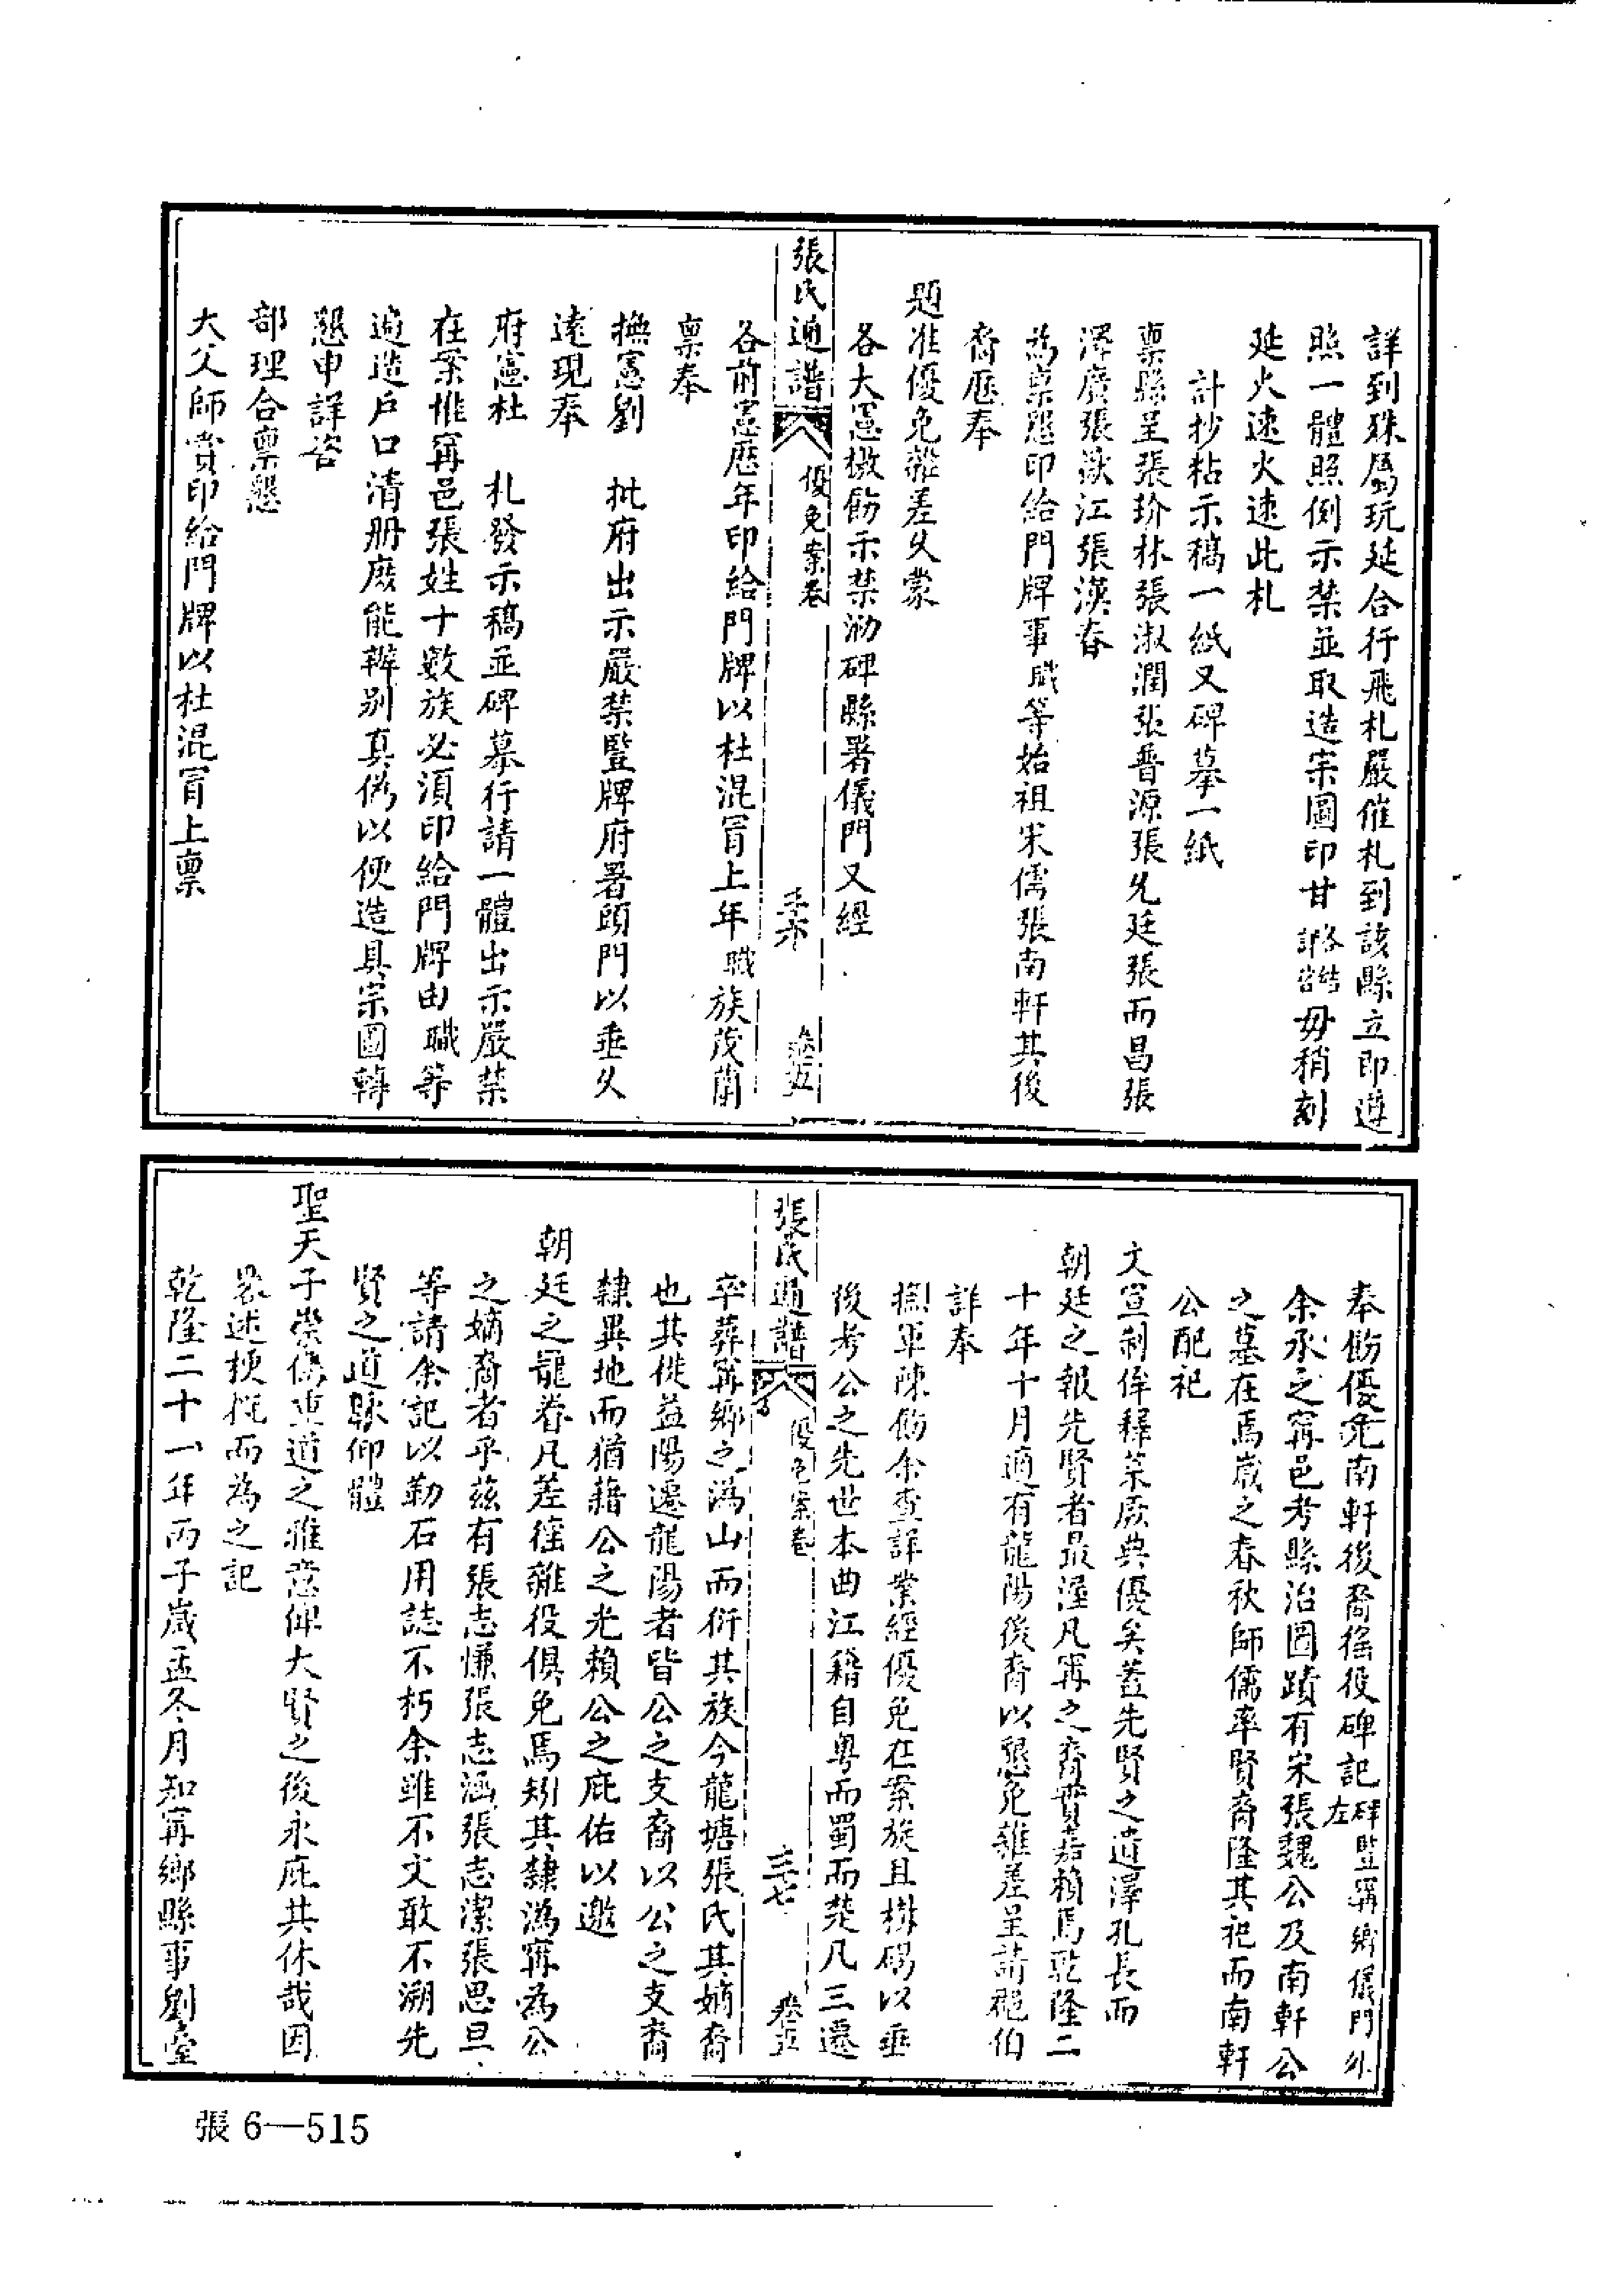 詳到殊屬玩延合行飛札嚴催札到該縣立即遵
照一體照例示禁並取造宗圖印甘各結詳咨毋稍刻
延火速火速此札
計抄粘示稿一紙又碑摹一紙
稟縣呈張玠林張淑潤張晋源張先廷張而昌張
澤廣張漱江張漢春
為稟懇印給門牌事職等始祖宋儒張南軒其後
裔歷奉
題准優免雜差久蒙
各大憲檄飭示禁泐碑縣署儀門又經
張氏通譜
優免案卷
三六
卷五
各前憲歷年印給門牌以杜混冐上年職族茂蘭
稟奉
撫憲劉　批府出示嚴禁豎牌府署頭門以垂久
遠現奉
府憲杜　札發示稿並碑摹行請一體出示嚴禁
在案惟甯邑張姓十數族必須印給門牌由職等
遍造戶口清册庶能辨别真僞以便造具宗圖轉
懇申詳咨
部理合稟懇
大父師賞印給門牌以杜混冐上稟
奉飭優免南軒後裔徭役碑記碑豎甯鄉儀門外左
余承乏甯邑考縣治圖蹟有宋張魏公及南軒公
之墓在焉歲之春秋師儒率賢裔隆其祀而南軒
公配祀
文宣制侔釋菜厥典優矣蓋先賢之遺澤孔長而
朝廷之報先賢者最渥凡甯之裔實嘉賴焉乾隆二
十年十月適有龍陽後裔以懇免雜差呈請郡伯
詳奉
撫軍陳飭余查詳業經優免在案旋且樹碣以垂
後考公之先世本曲江籍自粤而蜀而楚凡三遷
張氏通譜
優免案卷
三七
卷五
卒葬甯鄉之溈山而衍其族今龍塘張氏其嫡裔
也其徙益陽遷龍陽者皆公之支裔以公之支裔
隸異地而猶藉公之光賴公之庇佑以邀
朝廷之寵眷凡差徭雜役俱免焉矧其隸溈甯為公
之嫡裔者乎茲有張志慊張志涵張志潔張思旦
等請余記以勒石用誌不朽余雖不文敢不溯先
賢之道脉仰體
聖天子崇儒重道之雅意俾大賢之後永庇其休哉因
畧述梗槪而為之記
乾隆二十一年丙子歲孟冬月知甯鄉縣事劉㙜
張 6—515